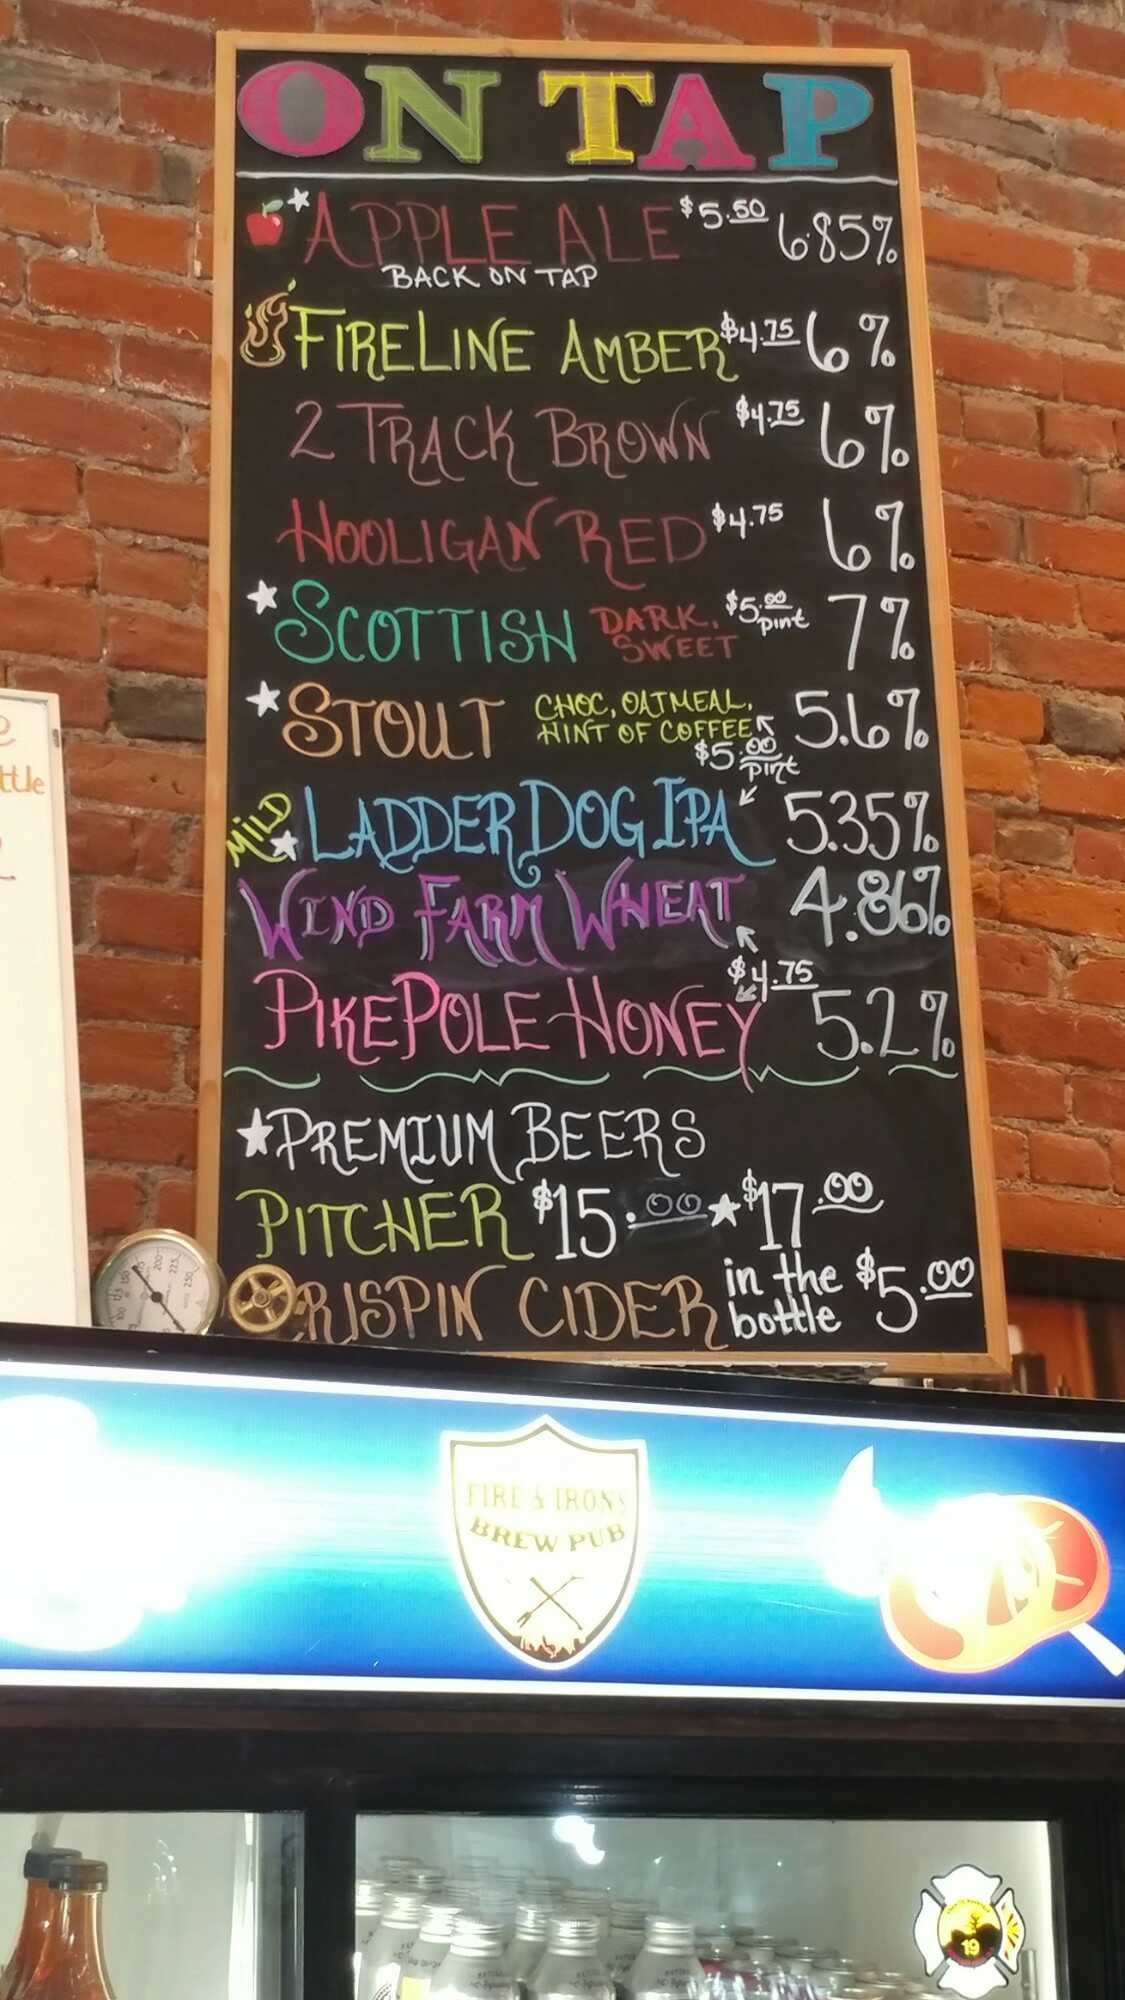 ON TAP
APPLE ALE $5.50 6.85%
BACK ON TAP
FIRELINE AMBER $4.75 6%
2 TRACK BROWN $4.75 6%
HOOLIGAN RED $4.75 6%
SCOTTISH DARK, SWEET $5.00 pint 7%
STOUT CHOC, OATMEAL, HINT OF COFFEE 5.6%
$5.00 pint
MILD LADDER DOG IPA 5.35%
WIND FARM WHEAT 4.86%
$4.75
PIKEPOLE HONEY 5.2%
PREMIUM BEERS
PITCHER $15.00 $17.00
CRISPIN CIDER in the bottle $5.00
FIRE & IRONS
BREW PUB
19